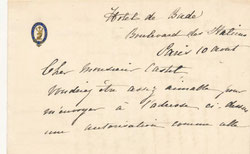 Hotel de Bade
Boulevard des Italiens
Paris 10 aout
Cher Monsieur Castel
Voudriez être assez aimable pour
m'envoyer à l'adresse ci-dessus
une autorisation comme celle